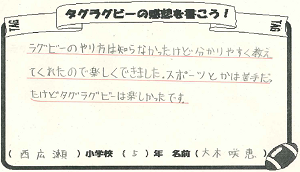 タグラグビーの感想を書こう！
TAG
TAG
ラグビーのやり方は知らなかったけど分かりやすく教え
てくれたので楽しくできました。スポーツとかは苦手だっ
たけどタグラグビーは楽しかったです。
（西広瀬）小学校（5）年 名前（大木咲恵）